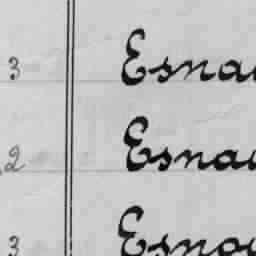 3 Esnau
2 Esnau
3 Esnou